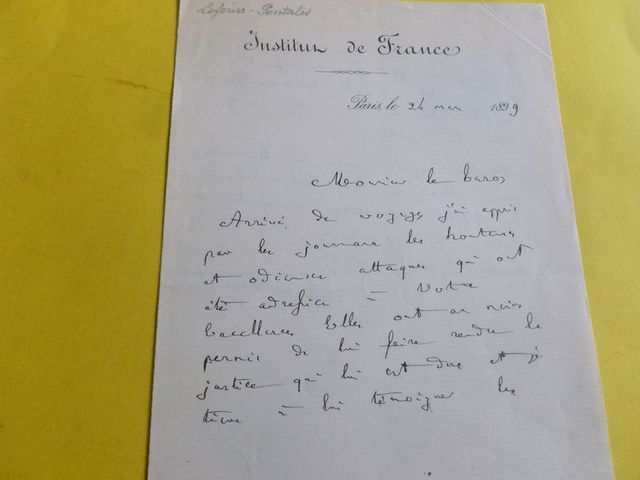 Lefèvre-Pontalis
Institut de France
Paris, le 24 mars 1899
Monsieur le baron
Arrivé de voyage j'ai appris
par les journaux les honteuses
et odieuses attaques qui ont
été adressées à Votre
Excellence. Elles ont au moins
permis de lui faire rendre la
justice qui lui est due et je
tiens à lui témoigner les